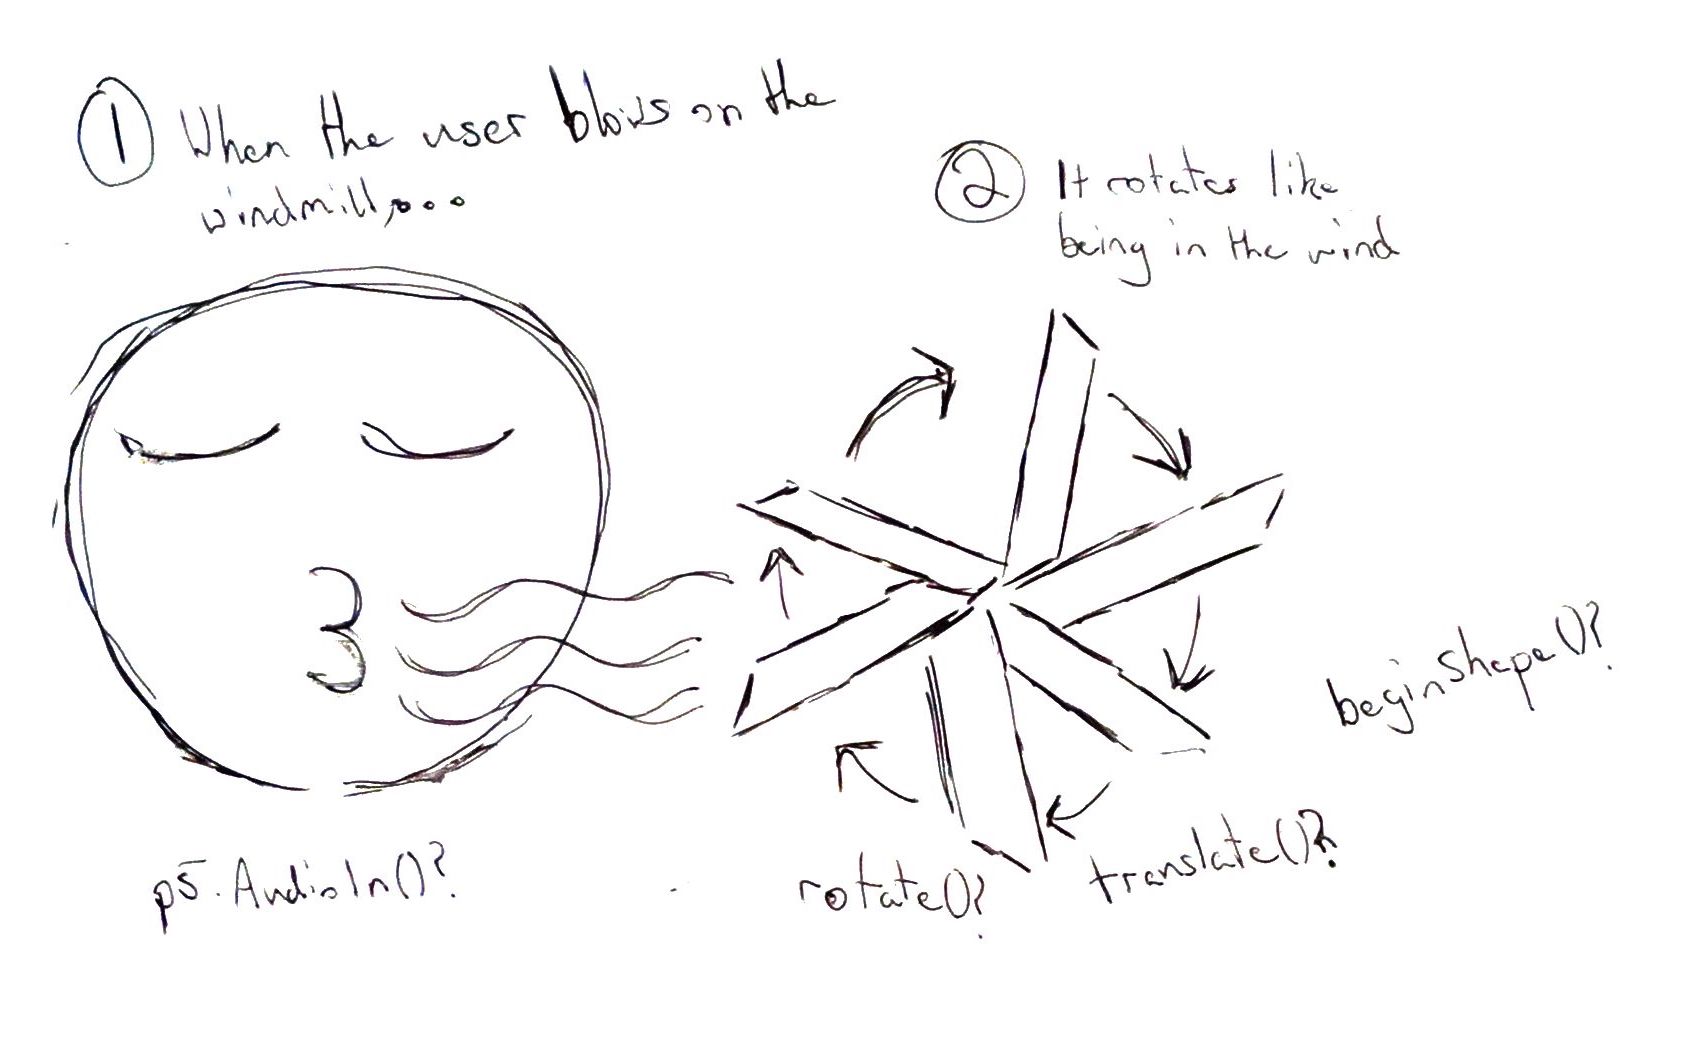 1 When the user blows on the
windmill,...
2 It rotates like
being in the wind
beginShape()?
p5.AudioIn()?
rotate()?
translate()?